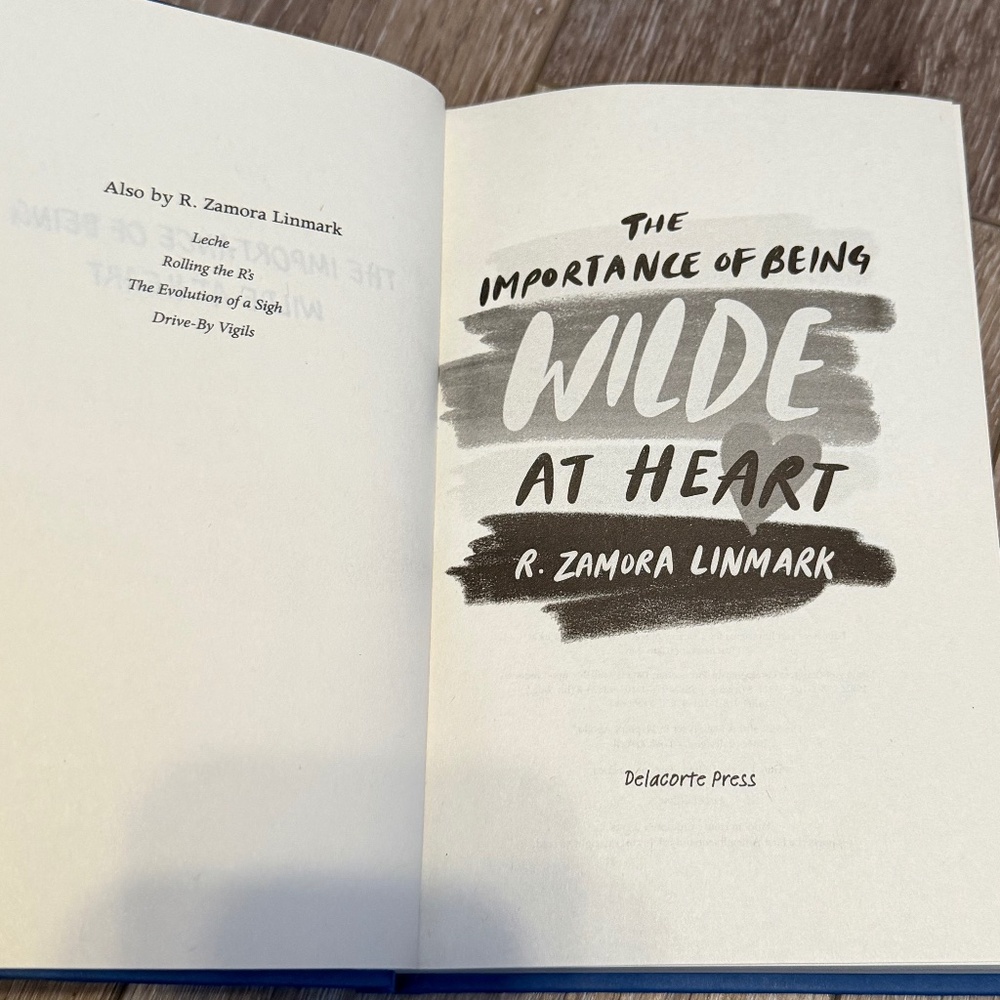 Also by R. Zamora Linmark
Leche
Rolling the R's
The Evolution of a Sigh
Drive-By Vigils
THE
IMPORTANCE OF BEING
WILDE
AT HEART
R. ZAMORA LINMARK
Delacorte Press